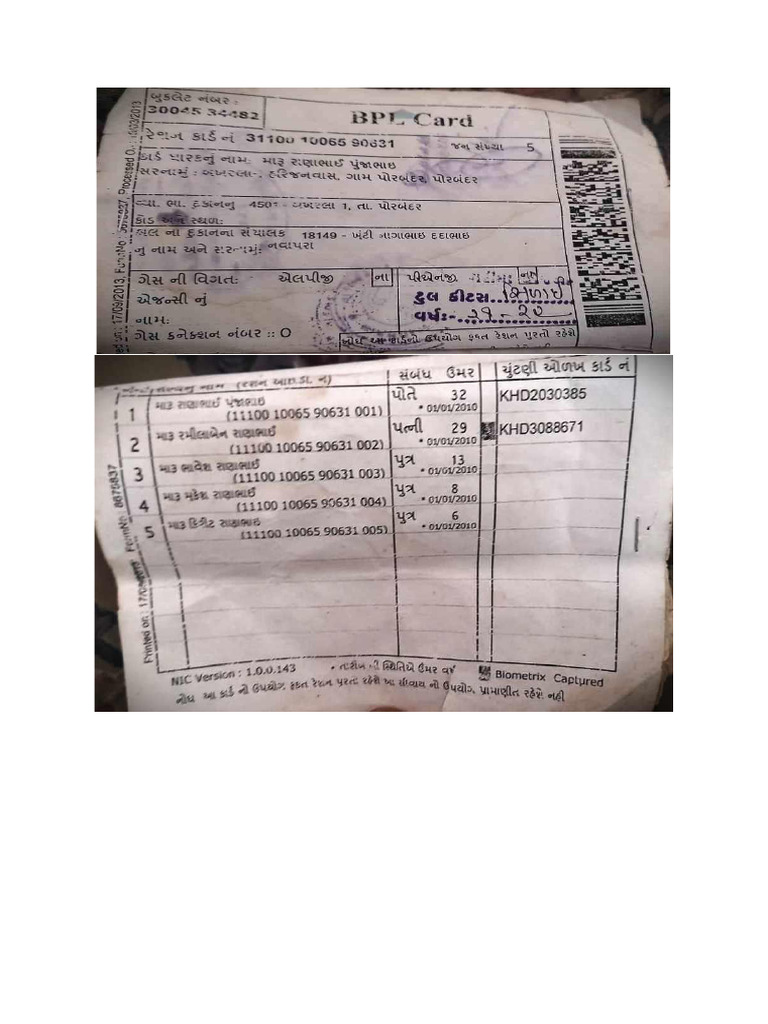 બુકલેટ નંબર :
30045 34482
BPL Card
રેશન કાર્ડ નં 31100 10065 90631
જન સંખ્યા 5
કાર્ડ ધારકનું નામ: મારૂ રાણાભાઈ પુંજાભાઇ
સરનામું : બખરલા-, હરિજનવાસ, ગામ પોરબંદર, પોરબંદર
વ્યા. ભા. દુકાનનુ 4501 - બખરલા 1, તા. પોરબંદર
કોડ અને સ્થળ:
હાલ ના દુકાનના સંચાલક 18149 - ખુંટી નાગાભાઇ દદાભાઇ
નુ નામ અને સરનામું: નવાપરા
ગેસ ની વિગત: એલપીજી ના પીએનજી
એજન્સી નું
ટુલ કીટસ
નામ:
વર્ષ:- ૨૧-૨૦
ગેસ કનેક્શન નંબર :: 0
નોંધ આ કાર્ડનો ઉપયોગ ફકત રેશન પુરતો રહેશે
સંબંધ ઉમર ચુંટણી ઓળખ કાર્ડ નં
1 મારૂ રાણાભાઈ પુંજાભાઇ પોતે 32 KHD2030385
(11100 10065 90631 001) * 01/01/2010
2 મારૂ રમીલાબેન રાણાભાઈ પત્ની 29 KHD3088671
(11100 10065 90631 002) * 01/01/2010
3 મારૂ ભાવેશ રાણાભાઈ પુત્ર 13
(11100 10065 90631 003) * 01/01/2010
4 મારૂ મુકેશ રાણાભાઈ પુત્ર 8
(11100 10065 90631 004) * 01/01/2010
5 મારૂ કિરીટ રાણાભાઈ પુત્ર 6
(11100 10065 90631 005) * 01/01/2010
Printed on : FormNo : 8675837
NIC Version : 1.0.0.143 * તારીખ ની સ્થિતિએ ઉંમર વર્ષ Biometrix Captured
નોંધ આ કાર્ડ નો ઉપયોગ, ફકત રેશન પુરતો રહેશે આ સીવાય નો ઉપયોગ, પ્રમાણીત રહેશે નહી